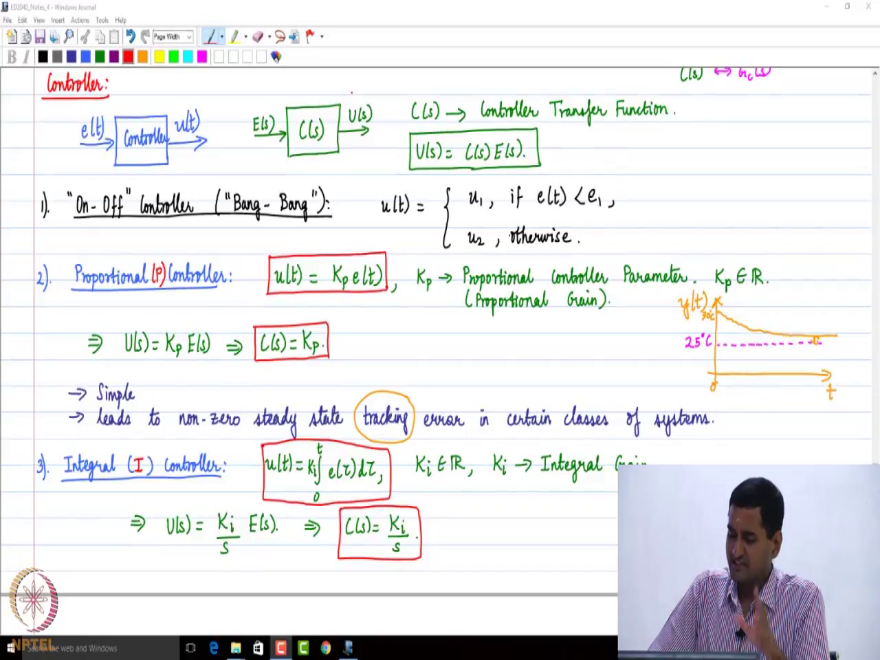 ED2040_Notes_4 - Windows Journal
File Edit View Insert Actions Tools Help
Page Width
B I
C(s) ↔ Gc(s)
Controller:
e(t) Controller u(t)
E(s) C(s) U(s)
C(s) → Controller Transfer Function.
U(s) = C(s) E(s).
1). "On-Off" Controller ("Bang-Bang"): u(t) = { u₁, if e(t) < e₁,
u₂, otherwise.
2). Proportional (P) Controller: u(t) = Kp e(t), Kp → Proportional Controller Parameter. Kp ∈ ℝ.
(Proportional Gain).
⇒ U(s) = Kp E(s) ⇒ C(s) = Kp.
y(t)
30°C
25°C
0 t
→ Simple
→ leads to non-zero steady state tracking error in certain classes of systems.
3). Integral (I) Controller: u(t) = Ki ∫₀ᵗ e(τ) dτ, Ki ∈ ℝ, Ki → Integral Gain
⇒ U(s) = Ki/s E(s). ⇒ C(s) = Ki/s.
NPTEL
the web and Windows